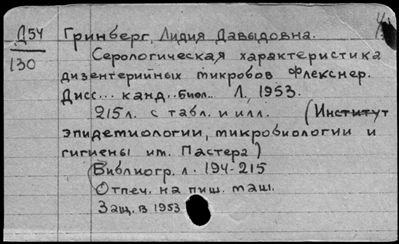 Д54 Гринберг, Лидия Давыдовна.
130 Серологическая характеристика
дизентерийных микробов Флекснер.
Дисс... канд..биол.. Л, 1953.
215л. с табл. и илл. (Институт
эпидемиологии, микробиологии и
гигиены им. Пастера)
(Библиогр. л. 194-215
Отпеч. на пиш. маш.
Защ. в 1953